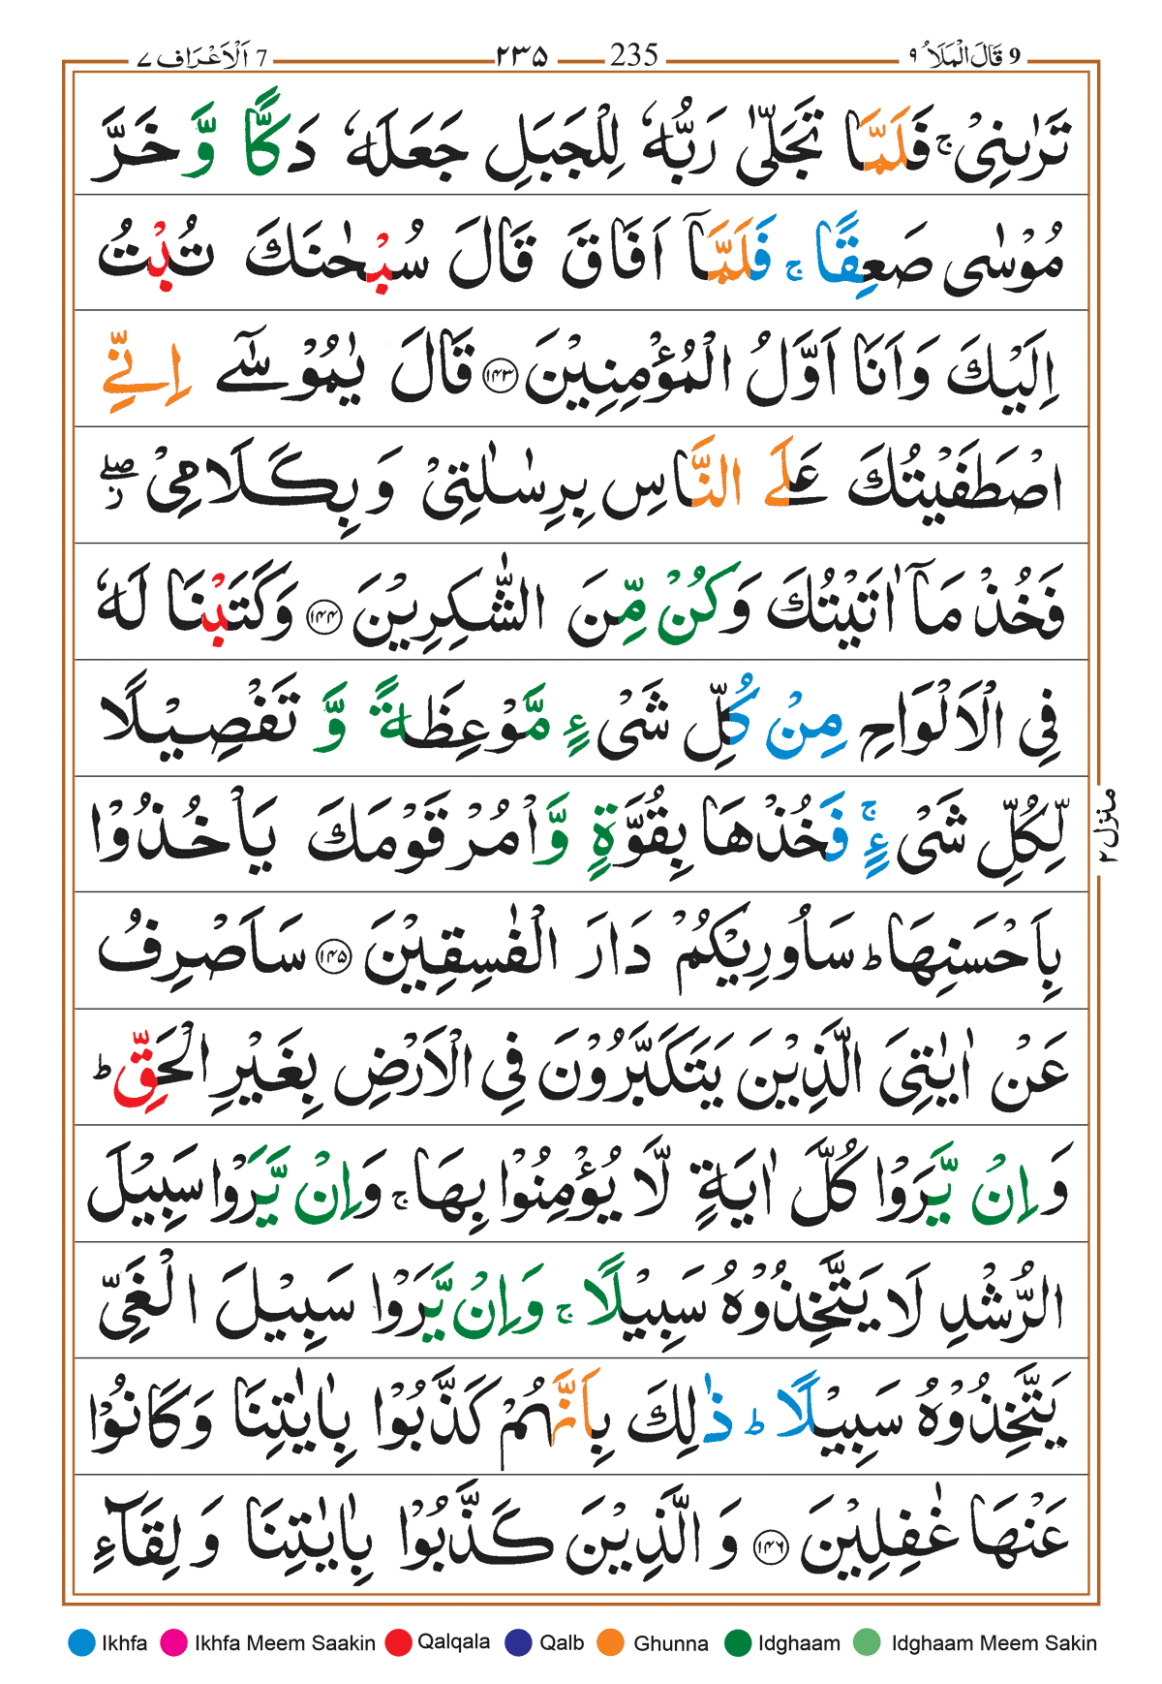 9 قَالَ الْمَلَاُ ٩ 235 ٢٣٥ 7 اَلْاَعْرَاف ٧
تَرٰىنِیْ ۚ فَلَمَّا تَجَلّٰی رَبُّهٗ لِلْجَبَلِ جَعَلَهٗ دَكًّا وَّ خَرَّ
مُوْسٰی صَعِقًا ۚ فَلَمَّاۤ اَفَاقَ قَالَ سُبْحٰنَكَ تُبْتُ
اِلَیْكَ وَ اَنَا اَوَّلُ الْمُؤْمِنِیْنَ ﴿۱۴۳﴾ قَالَ یٰمُوْسٰۤی اِنِّی
اصْطَفَیْتُكَ عَلَی النَّاسِ بِرِسٰلٰتِیْ وَ بِكَلَامِیْ ۖؗ
فَخُذْ مَاۤ اٰتَیْتُكَ وَ كُنْ مِّنَ الشّٰكِرِیْنَ ﴿۱۴۴﴾ وَ كَتَبْنَا لَهٗ
فِی الْاَلْوَاحِ مِنْ كُلِّ شَیْءٍ مَّوْعِظَةً وَّ تَفْصِیْلًا
لِّكُلِّ شَیْءٍ ۚ فَخُذْهَا بِقُوَّةٍ وَّ اْمُرْ قَوْمَكَ یَاْخُذُوْا
بِاَحْسَنِهَا ؕ سَاُورِیْكُمْ دَارَ الْفٰسِقِیْنَ ﴿۱۴۵﴾ سَاَصْرِفُ
عَنْ اٰیٰتِیَ الَّذِیْنَ یَتَكَبَّرُوْنَ فِی الْاَرْضِ بِغَیْرِ الْحَقِّ ؕ
وَ اِنْ یَّرَوْا كُلَّ اٰیَةٍ لَّا یُؤْمِنُوْا بِهَا ۚ وَ اِنْ یَّرَوْا سَبِیْلَ
الرُّشْدِ لَا یَتَّخِذُوْهُ سَبِیْلًا ۚ وَ اِنْ یَّرَوْا سَبِیْلَ الْغَیِّ
یَتَّخِذُوْهُ سَبِیْلًا ؕ ذٰلِكَ بِاَنَّهُمْ كَذَّبُوْا بِاٰیٰتِنَا وَ كَانُوْا
عَنْهَا غٰفِلِیْنَ ﴿۱۴۶﴾ وَ الَّذِیْنَ كَذَّبُوْا بِاٰیٰتِنَا وَ لِقَآءِ
منزل ٢
Ikhfa Ikhfa Meem Saakin Qalqala Qalb Ghunna Idghaam Idghaam Meem Sakin